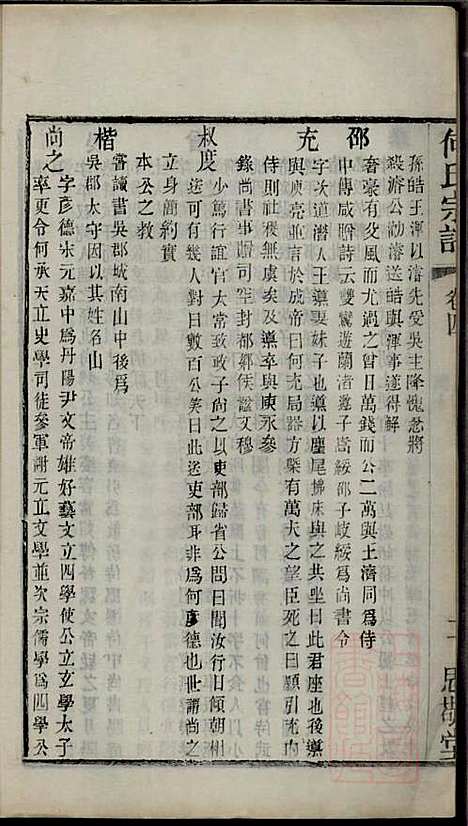 何氏宗譜
卷四
思敬堂
孫皓王渾以濬先受吳主降愧忿將
殺濬公勸濬送皓與渾事遂得解
邵
奢豪有父風而尤過之曾日萬錢而公二萬與王濟同為侍
中傅咸贈詩云雙鸞遊蘭渚邀子嵩綏邵子岐綏為尚書令
充
字次道潛人王導妻妹子也導以麈尾拂床與之共坐曰此君座也後導
與庾亮並言於成帝曰何尤局器方槩有萬夫之望臣死之曰願引充內
侍則社稷無虞矣及導卒與庾氷參
錄尚書事司空封都鄉侯諡文穆
叔度
少篤行誼官太常致政子尚之以吏部歸省公問曰聞汝行日傾朝相
送可有幾人對曰數百公笑曰此送吏部耳非為何彥德也世謂尚之
立身簡約實
本公之教
楷
嘗讀書吳郡城南山中後為
吳郡太守因以其姓名山
尚之
字彥德宋元嘉中為丹陽尹文帝雄好藝文立四學使公立玄學太子
率更令何承天立史學司徒參軍謝元立文學並次宗儒學為四學公